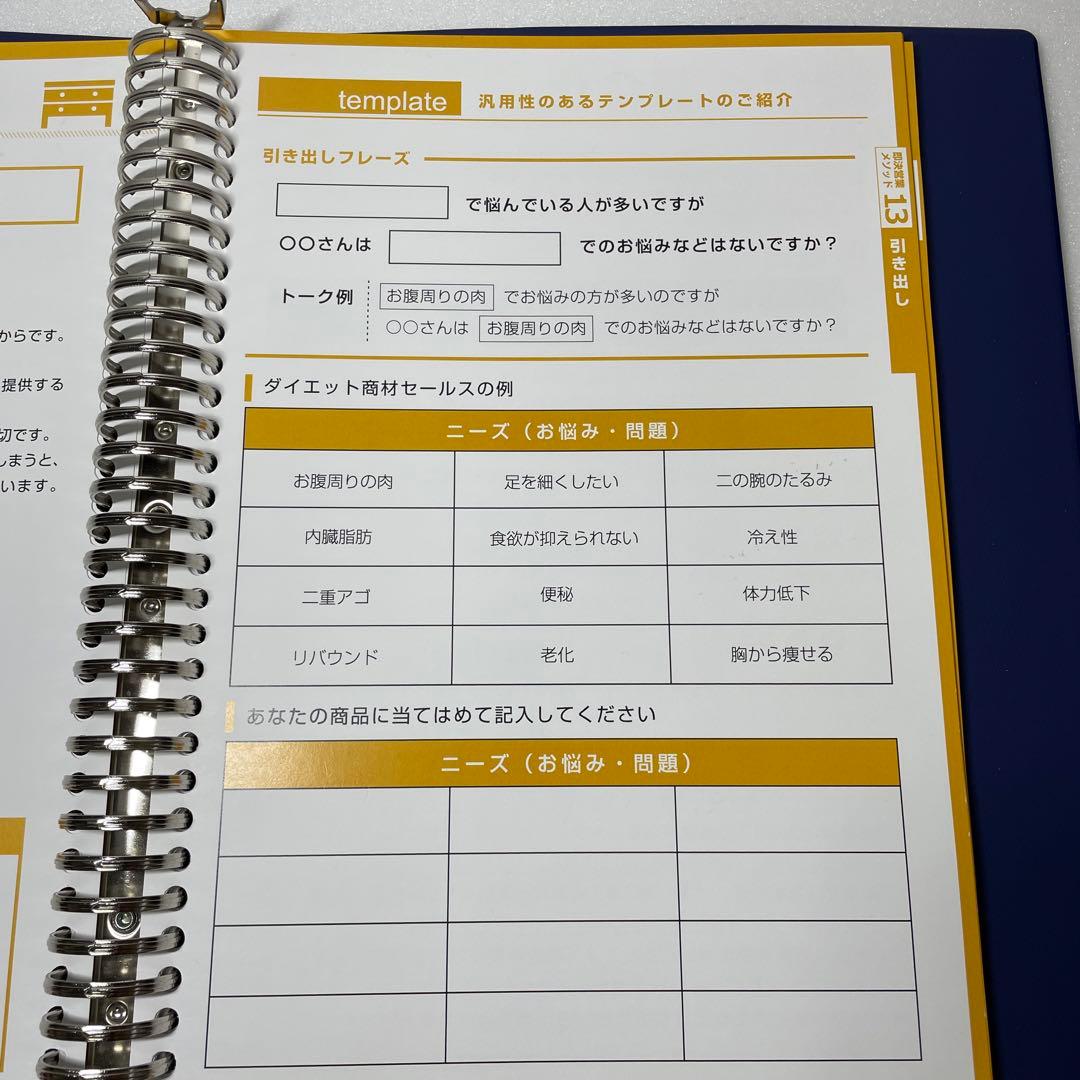 template 汎用性のあるテンプレートのご紹介
引き出しフレーズ
で悩んでいる人が多いですが
〇〇さんは でのお悩みなどはないですか？
トーク例 お腹周りの肉 でお悩みの方が多いのですが
〇〇さんは お腹周りの肉 でのお悩みなどはないですか？
ダイエット商材セールスの例
ニーズ（お悩み・問題）
お腹周りの肉 足を細くしたい 二の腕のたるみ
内臓脂肪 食欲が抑えられない 冷え性
二重アゴ 便秘 体力低下
リバウンド 老化 胸から痩せる
あなたの商品に当てはめて記入してください
ニーズ（お悩み・問題）
即決営業
メソッド
13
引き出し
からです。
提供する
切です。
しまうと、
います。